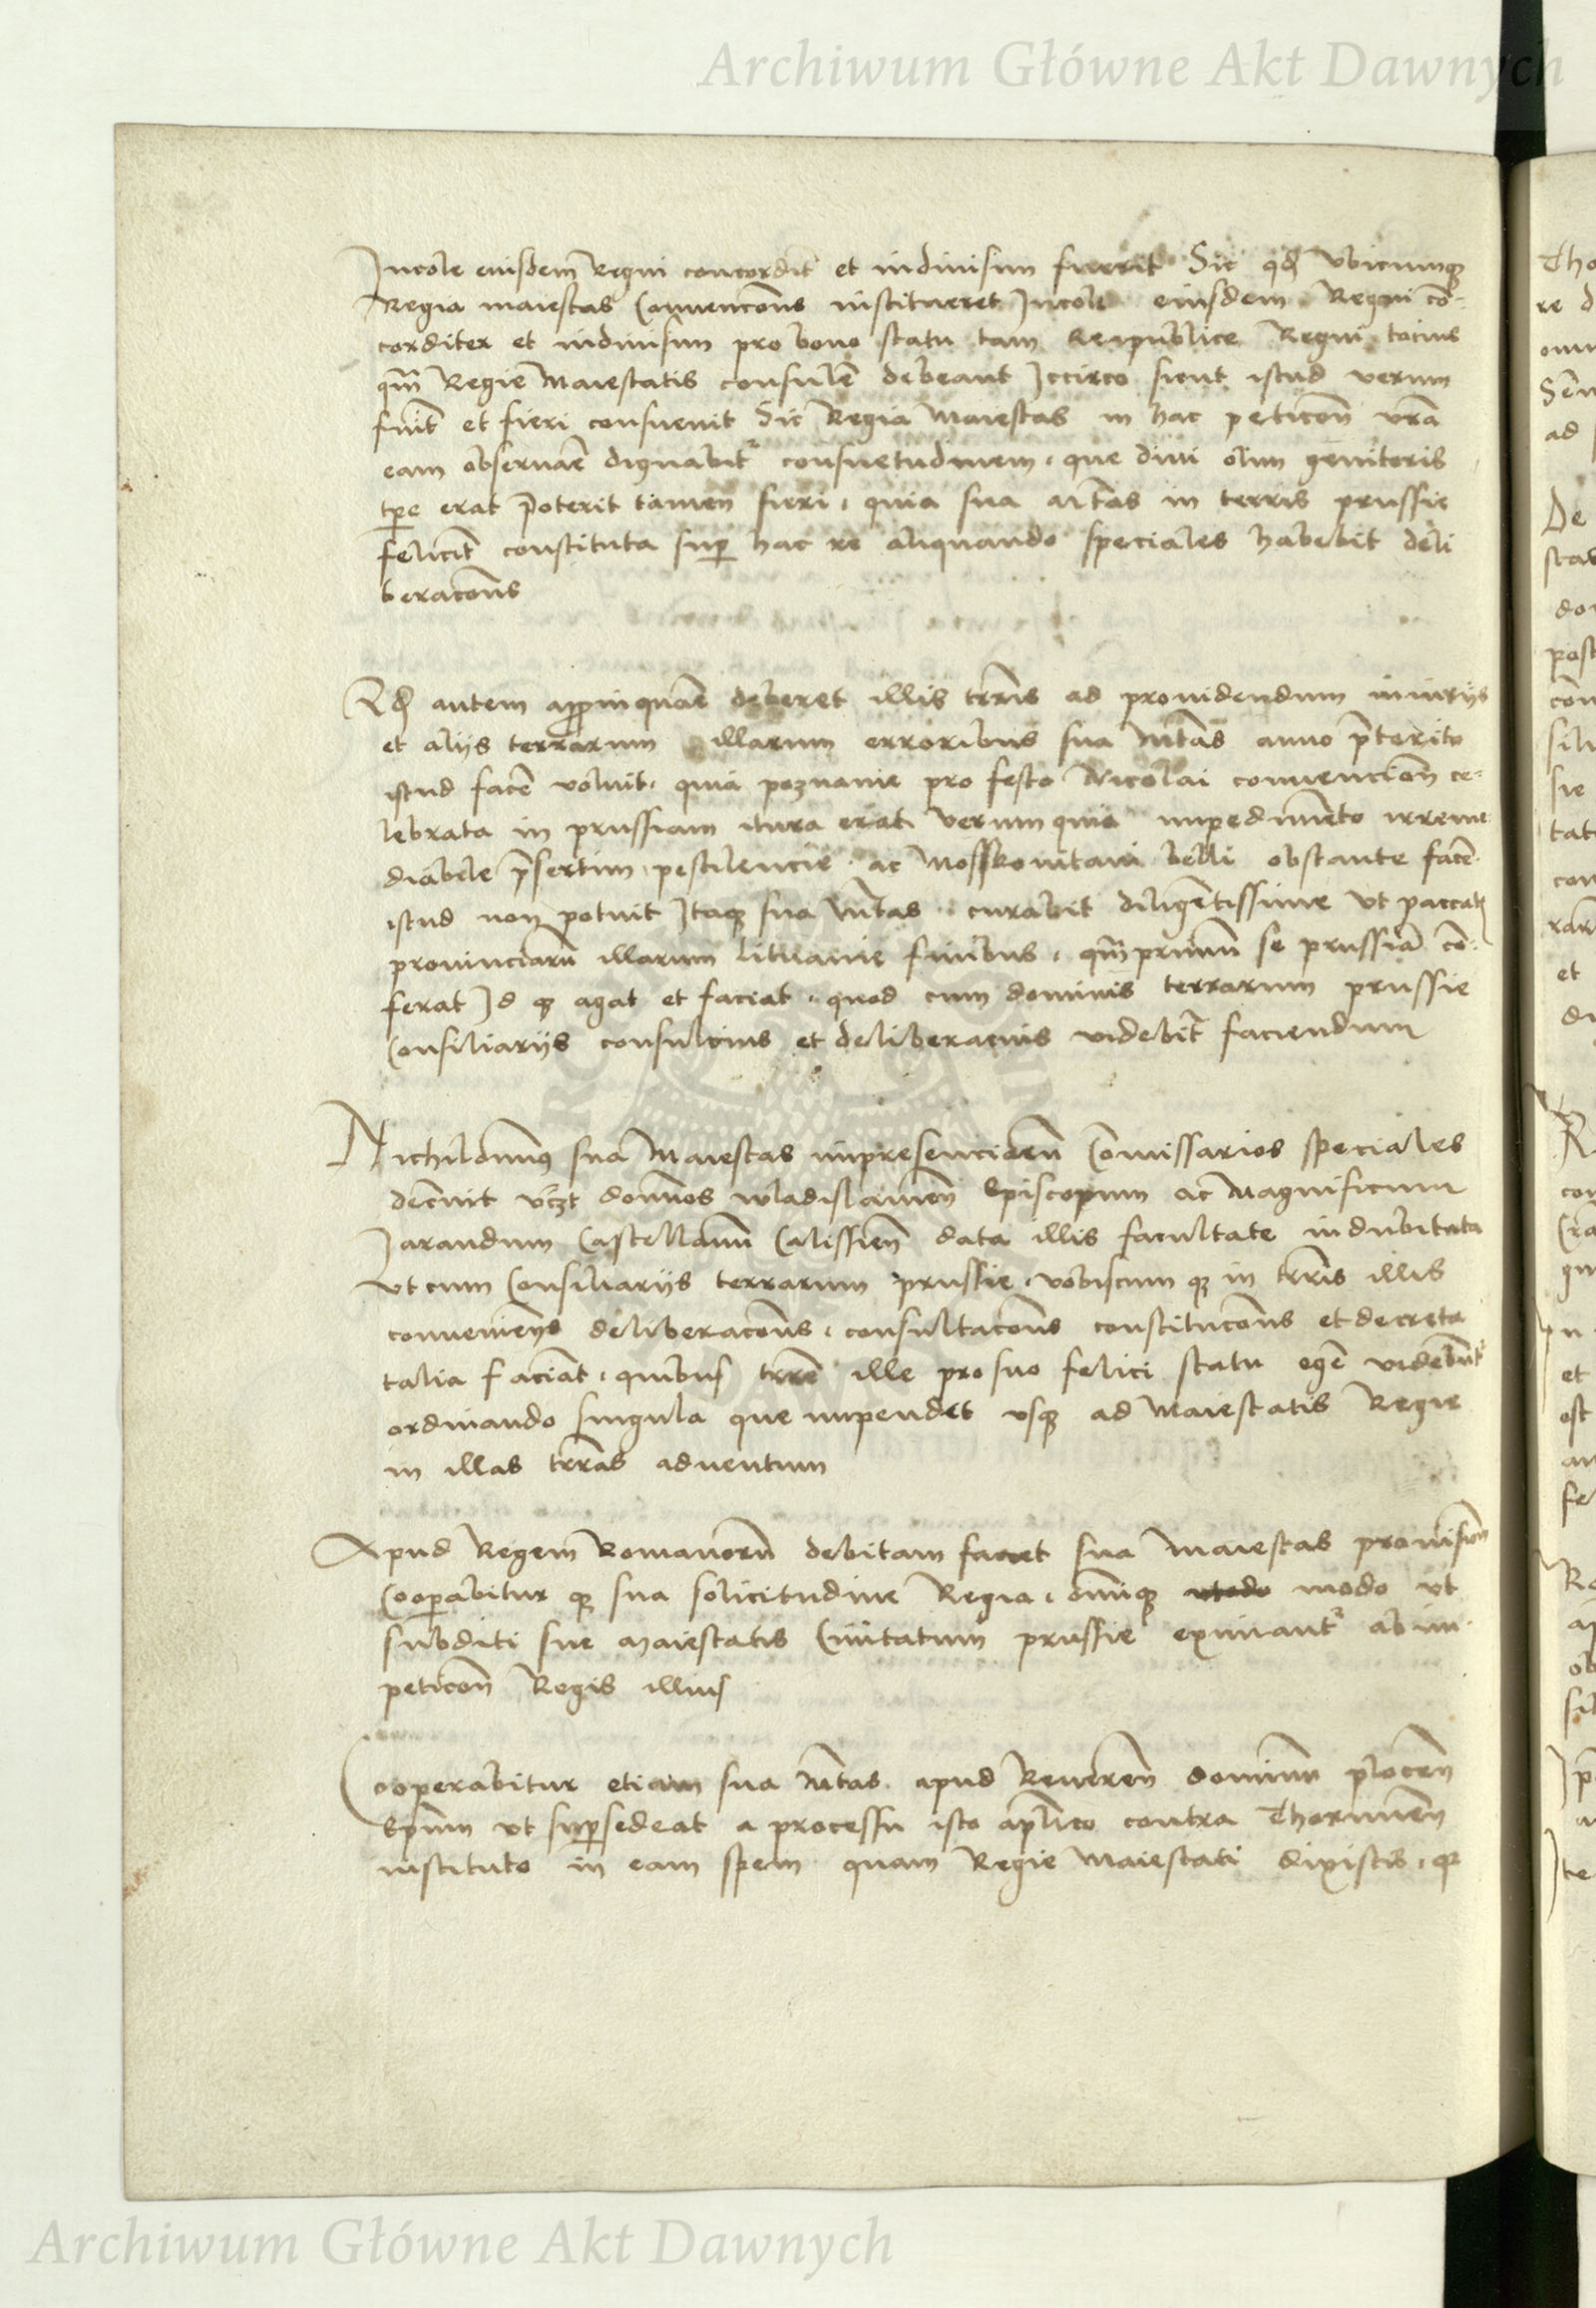 Archiwum Główne Akt Dawnych
Incole eiusdem Regni concordit̄ et indiuisim fuerit Sic qd̄ Vbicumqꝫ
Regia maiestas Conuenc̄ons institueret Incole eiusdem Regni cō-
corditer et indiuisim pro bono statu tam Reipublice Regni tocius
qm̄ Regie Maiestatis consulē̄ debeant Iccirco sicut istud verum
fuit et fieri consueuit Sic Regia Maiestas in hac petic̄on vr̄a
eam obseruar̄e dignabit̄ consuetudinem, que diui olim genitoris
tp̄e erat Poterit tamen fieri, quia sua M̄tas in terris prussie
felicit̄ constituta sup̄ hac re aliquando speciales habebit deli
berac̄ons
Qd̄ autem appr̄inquar̄e deberet illis tr̄ris ad prouidendum iniurijs
et alijs terrarum illarum erroribus sua M̄tas anno p̄terito
istud facē̄ voluit, quia poznanie pro festo Nicolai conuencion̄ ce-
lebrata in prussiam itura erat, Verum quia impedim̄ento irreme
diabile p̄sertim pestilencie ac Mosskouitani belli obstante facē̄
istud non potuit Itaqꝫ sua M̄tas curabit diligē̄tissime Vt paccatꝭ
prouinciarū illarum lituanie finibus, qm̄primum se prussiā cō-
ferat Id qꝫ agat et faciat, quod cum dominis terrarum prussie
Consiliarijs consulcius et deliberacius videbit̄ faciendum
Nichilomin̄ꝯ sua Maiestas impresenciarū Com̄issarios speciales
dec̄uit vꝫt dom̄nos wladislauien̄ Episcopum ac Magnificum
Jarandum Castellanū Calissien̄ data illis facultate indubitata
Vt cum Consiliarijs terrarum prussie, vobiscum qꝫ in tr̄ris illis
conuenien̄s deliberac̄ons, consultac̄ons constituc̄ons et decreta
talia faciāt, quibus tr̄re ille pro suo felici statu egē̄ videbūt̄
ordinando singula que impendet vsqꝫ ad Maiestatis Regie
in illas tr̄ras aduentum
Apud Regem Romanorū debitam faciet sua Maiestas prouision̄
Coop̄abitur qꝫ sua solicitudine Regia, om̄iqꝫ modo Vt
subditi sue Maiestatis Ciuitatum prussie eximant̄ ab im-
petic̄on Regis illius
Cooperabitur etiam sua M̄tas apud Reueren̄ dominum plocen̄
Ep̄um vt sup̄sedeat a processu isto ap̄lico contra Thorunen̄
instituto in eam spem quam Regie Maiestati dixistis, qꝫ
Archiwum Główne Akt Dawnych